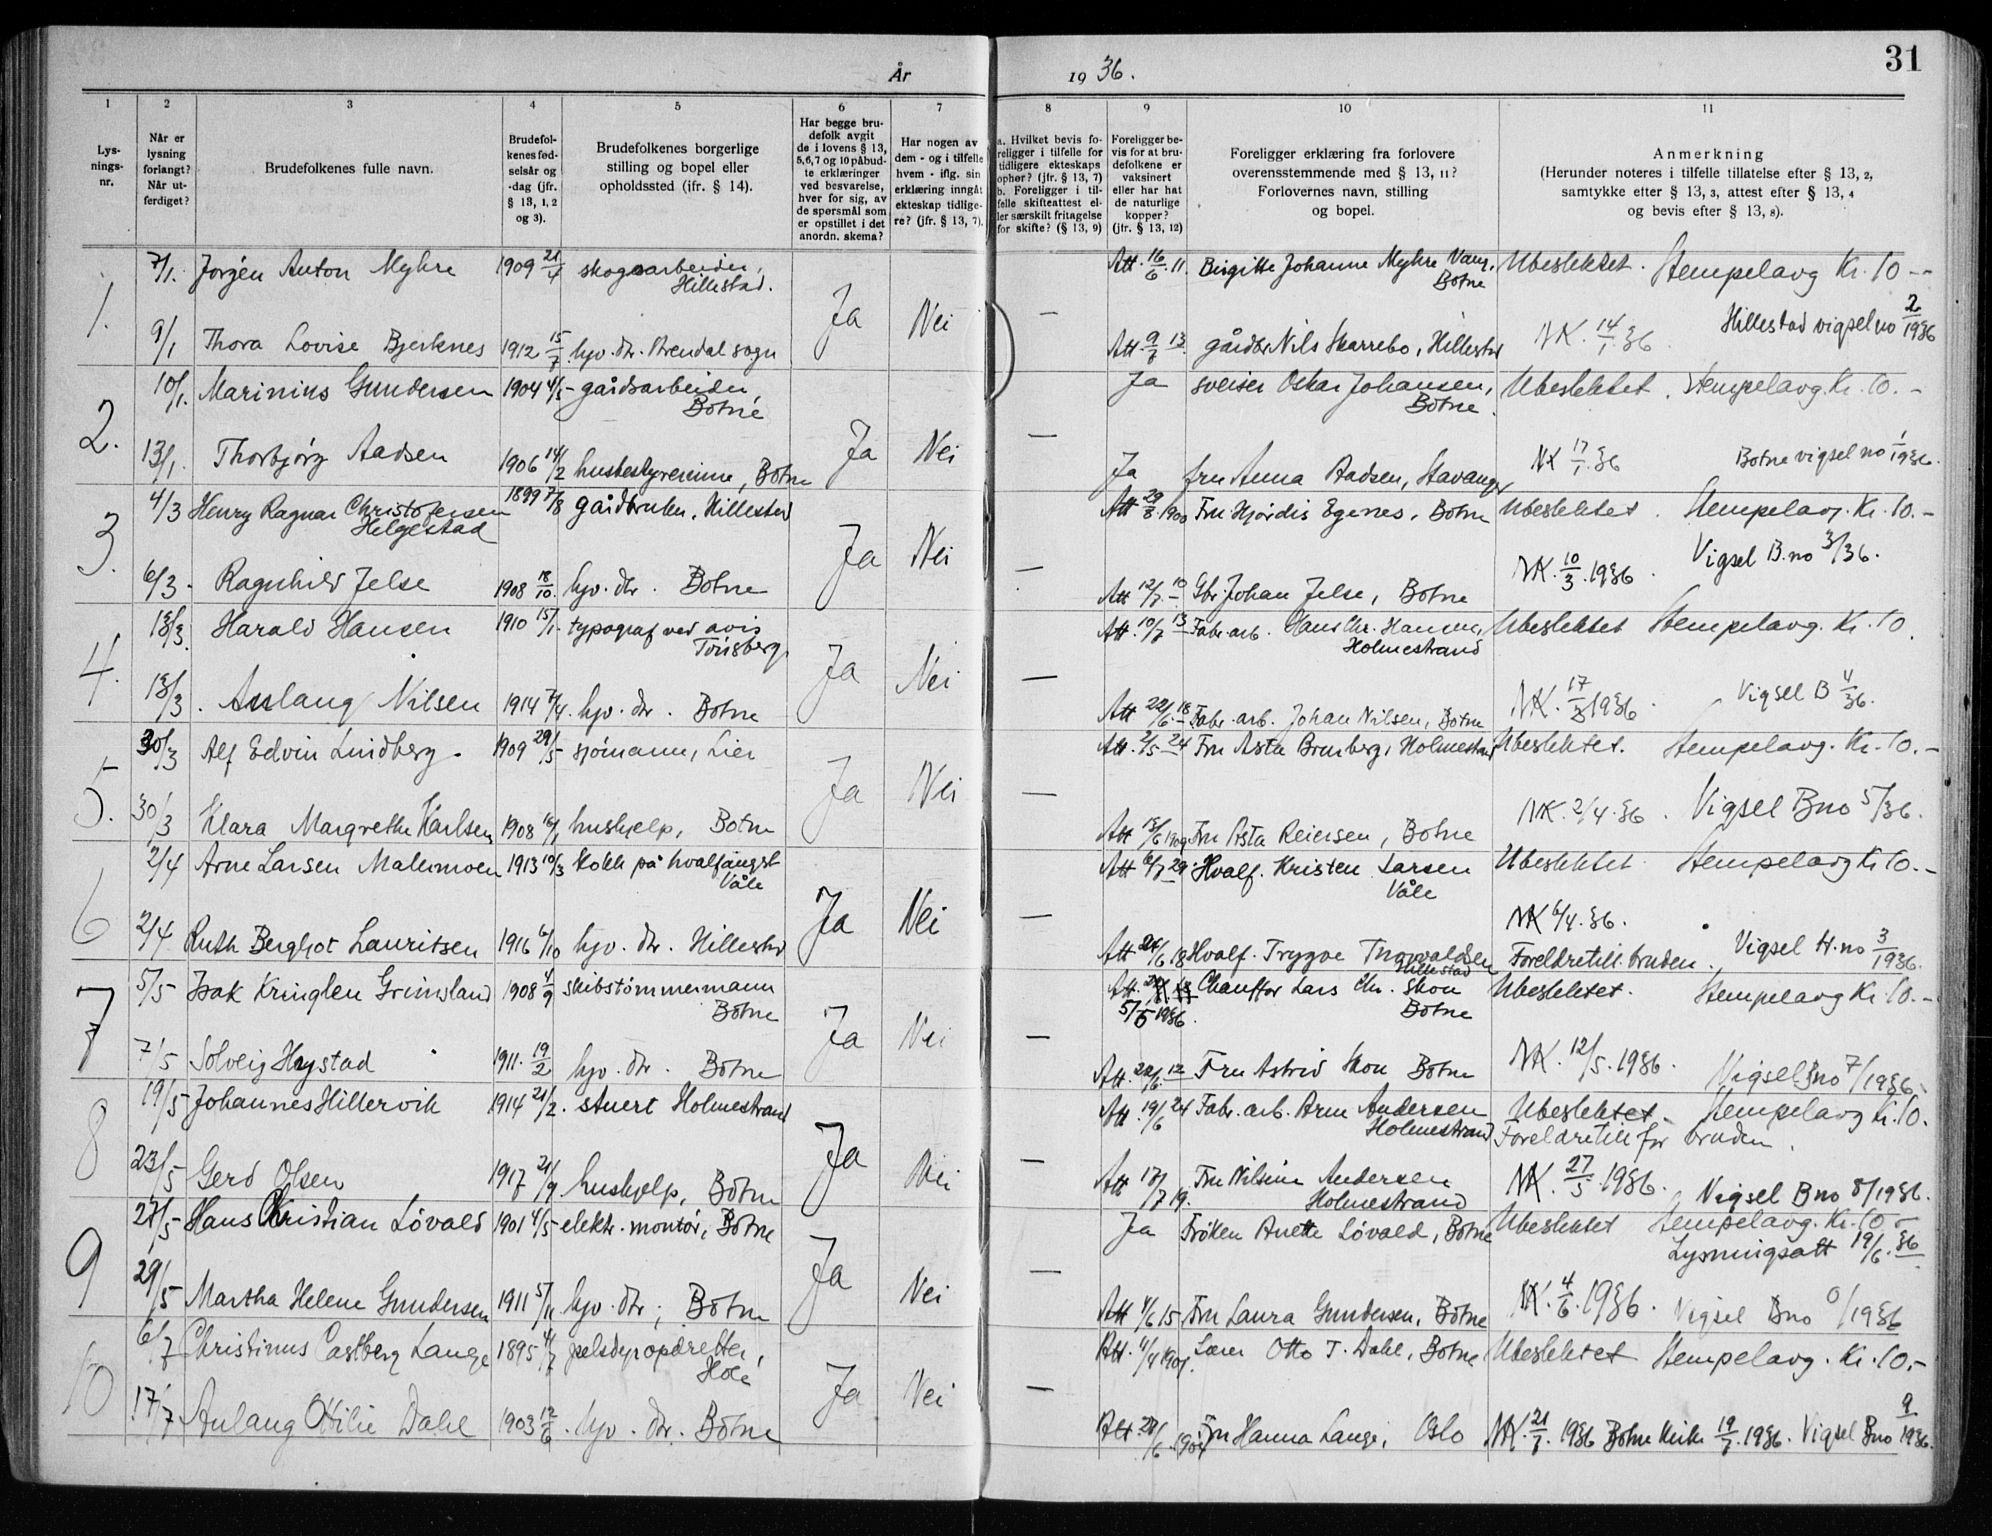 31
År 1936.
1 2 3 4 5 6 7 8 9 10 11
Lys-
nings-
nr.
Når er
lysning
forlangt?
Når ut-
ferdiget?
Brudefolkenes fulle navn.
Brudefol-
kenes fød-
selsår og
-dag (jfr.
§ 13, 1, 2
og 3).
Brudefolkenes borgerlige
stilling og bopel eller
opholdssted (ifr. § 14).
Har begge bru-
defolk avgit
de i lovens § 13,
5,6,7 og 10 påbud-
te erklæringer
ved besvarelse,
hver for sig, av
de spørsmål som
er opstillet i det
anordn. skema?
Har nogen av
dem - og i tilfelle
hvem - iflg. sin
erklæring inngåt
ekteskap tidlige-
re? (jfr. § 13, 7).
a. Hvilket bevis fo-
religger i tilfelle for
tidligere ekteskaps
ophør? (jfr. § 13, 7)
b. Foreligger i til-
felle skifteattest el-
ler særskilt fritagelse
for skifte? (§ 13, 9)
Foreligger be-
vis for at bru-
defolkene er
vaksinert
eller har hat
de naturlige
kopper?
(jfr. § 13, 12)
Foreligger erklæring fra forlovere
overensstemmende med § 13, 11?
Forlovernes navn, stilling
og bopel.
Anmerkning
(Herunder noteres i tilfelle tillatelse efter § 13, 2,
samtykke efter § 13, 3, attest efter § 13, 4
og bevis efter § 13, 8).
1. 7/1. Jørgen Anton Myhre 1909 21/4 skogsarbeider, Hillestad. Ja Nei — Att. 16/6.11. Birgitte Johanne Myhre Botne Ubeslektet. Stempelavg Kr. 10 --
9/1 Thora Lovise Bjerknes 1912 15/7 hjv. dtr. sogn Att. 13. gårdbr Nils Skarrebo, Hillestad NK. 14/1.36 Hillestad vigsel no 2/1936
2. 10/1. Marinius Gundersen 1904 4/5 gårdsarbeider Botne Ja Nei — Ja sveiser Oskar Johansen, Botne. Ubeslektet. Stempelavg. Kr. 10. -
13/1. Thorbjørg Aadsen 1906 14/2 husbestyrerinne, Botne Ja fru Anna Aadsen, Stavanger NK 17/1.36 Botne vigsel no 1/1936.
3. 4/3 Henry Ragnar Christofersen Helgestad 1899 7/8 gårdbruker, Hillestad Ja Nei — Att 29/8.1900 Fru Hjørdis Egenes, Botne Ubeslektet. Stempelavg. Kr. 10. -
6/3. Ragnhild Jelse 1908 18/10 hjv. dtr. Botne Att 12/7.10 Gbr. Johan Jelse, Botne NK. 10/3.1936. Vigsel B. no 3/36.
4. 13/3. Harald Hansen 1910 15/1. typograf ved avis Tønsberg Ja Nei — Att. 10/7 13 Fabr. arb. Hans Chr. Hansen, Holmestrand Ubeslektet Stempelavg. Kr. 10.
13/3. Aslaug Nilsen 1914 7/4. hjv. dtr. Botne Att 22/6.18 Fabr. arb. Johan Nilsen, Botne NK. 17/3 1936. Vigsel B 4/36.
5. 30/3 Alf Edvin Lindberg. 1909 29/5 sjømann, Lier Ja Nei — Att. 2/5 24 Fru Asta Brunberg, Holmestrand Ubeslektet. Stempelavg. Kr. 10. -
30/3 Klara Margrethe Karlsen 1908 hushjelp, Botne Att 1909 Fru Asta Reiersen, Botne NK. 2/4.36. Vigsel B no 5/36.
6 2/4 Arne Larsen Malumoen 1913 10/3 Kokk på hvalfangst Våle Ja Nei Att 6/7 29. Hvalf. Kristen Larsen Våle Ubeslektet Stempelavg Kr 10. -
2/4 Ruth Bergljot Lauritsen 1916 6/10 hjv. dtr. Hillestad Att 18 Hvalf. Trygve Thorvaldsen Hillestad NK 6/4.36. Foreldretill. bruden. Vigsel H. no 3/1936.
7 5/5 Isak Kringlen Grimsland 1908 4/9 skibstømmermann Botne Ja Nei — Att. 5/5 1936. Chauffør Lars Chr. Skou Botne Ubeslektet. Stempelavg Kr. 10. -
7/5 Solveig Høystad 1911. 19/2 hjv. dtr. Botne Att. 22/6. 12 Fru Astrid Skou Botne NK. 12/5.1936. Vigsel B no 7/1936.
8 19/5 Johannes Hillervik 1914 21/2. stuert Holmestrand Ja Nei — Att 19/6 24 Fabr. arb. Arne Andersen Holmestrand Ubeslektet. Stempelavg Kr. 10. Foreldretill for bruden.
23/5 Gerd Olsen 1917 21/9 hushjelp, Botne Att 17/7 19. Fru Nilsine Andersen Holmestrand NK. 27/5.1936. Vigsel B no 8/1936.
9 27/5 Hans Christian Løvald 1901 4/5 elektr. montør, Botne Ja Nei — Ja Frøken Anette Løvald, Botne Ubeslektet Stempelavg. Kr. 10 - Lysningsatt 19/6.36
29/5 Martha Helene Gundersen 1911 5/11 hjv. dtr., Botne Att 4/6 15 Fru Laura Gundersen, Botne NK. 4/6.1936. Vigsel B no /1936
10 6/7 Christinus Castberg Lange 1895 4/7 pelsdyropdretter, Hole Ja Nei — Att. 4/4 1901. Lærer Otto T. Dahl, Botne Ubeslektet Stempelavg. Kr. 10,-
17/7 Aslaug Ottilie Dahl 1903 12/6. hjv. dtr. Botne Att. Fru Hanna Lange, Oslo NK. 21/7.1936 Botne kirke 19/7.1936. Vigsel B no 9/1936.